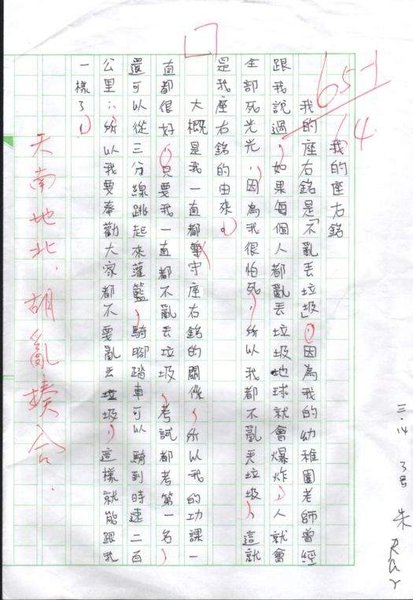 65-1
14
我的座右銘
我的座右銘是「不亂丟垃圾」。因為我的幼稚園老師曾經
跟我說過，如果每個人都亂丟垃圾地球就會爆炸，人就會
全部死光光，因為我很怕死，所以我都不亂丟垃圾，這就
是我座右銘的由來。
大概是我一直都有守座右銘的關係，所以我的功課一
直都很好，只要我一直都不亂丟垃圾，考試都考第一名，
還可以從三分線跳起來灌籃，騎腳踏車可以騎到時速二百
公里，所以我要奉勸大家都不要亂丟垃圾，這樣就能跟我
一樣了。
天南地北．胡亂揍合．
三.14 3号 朱